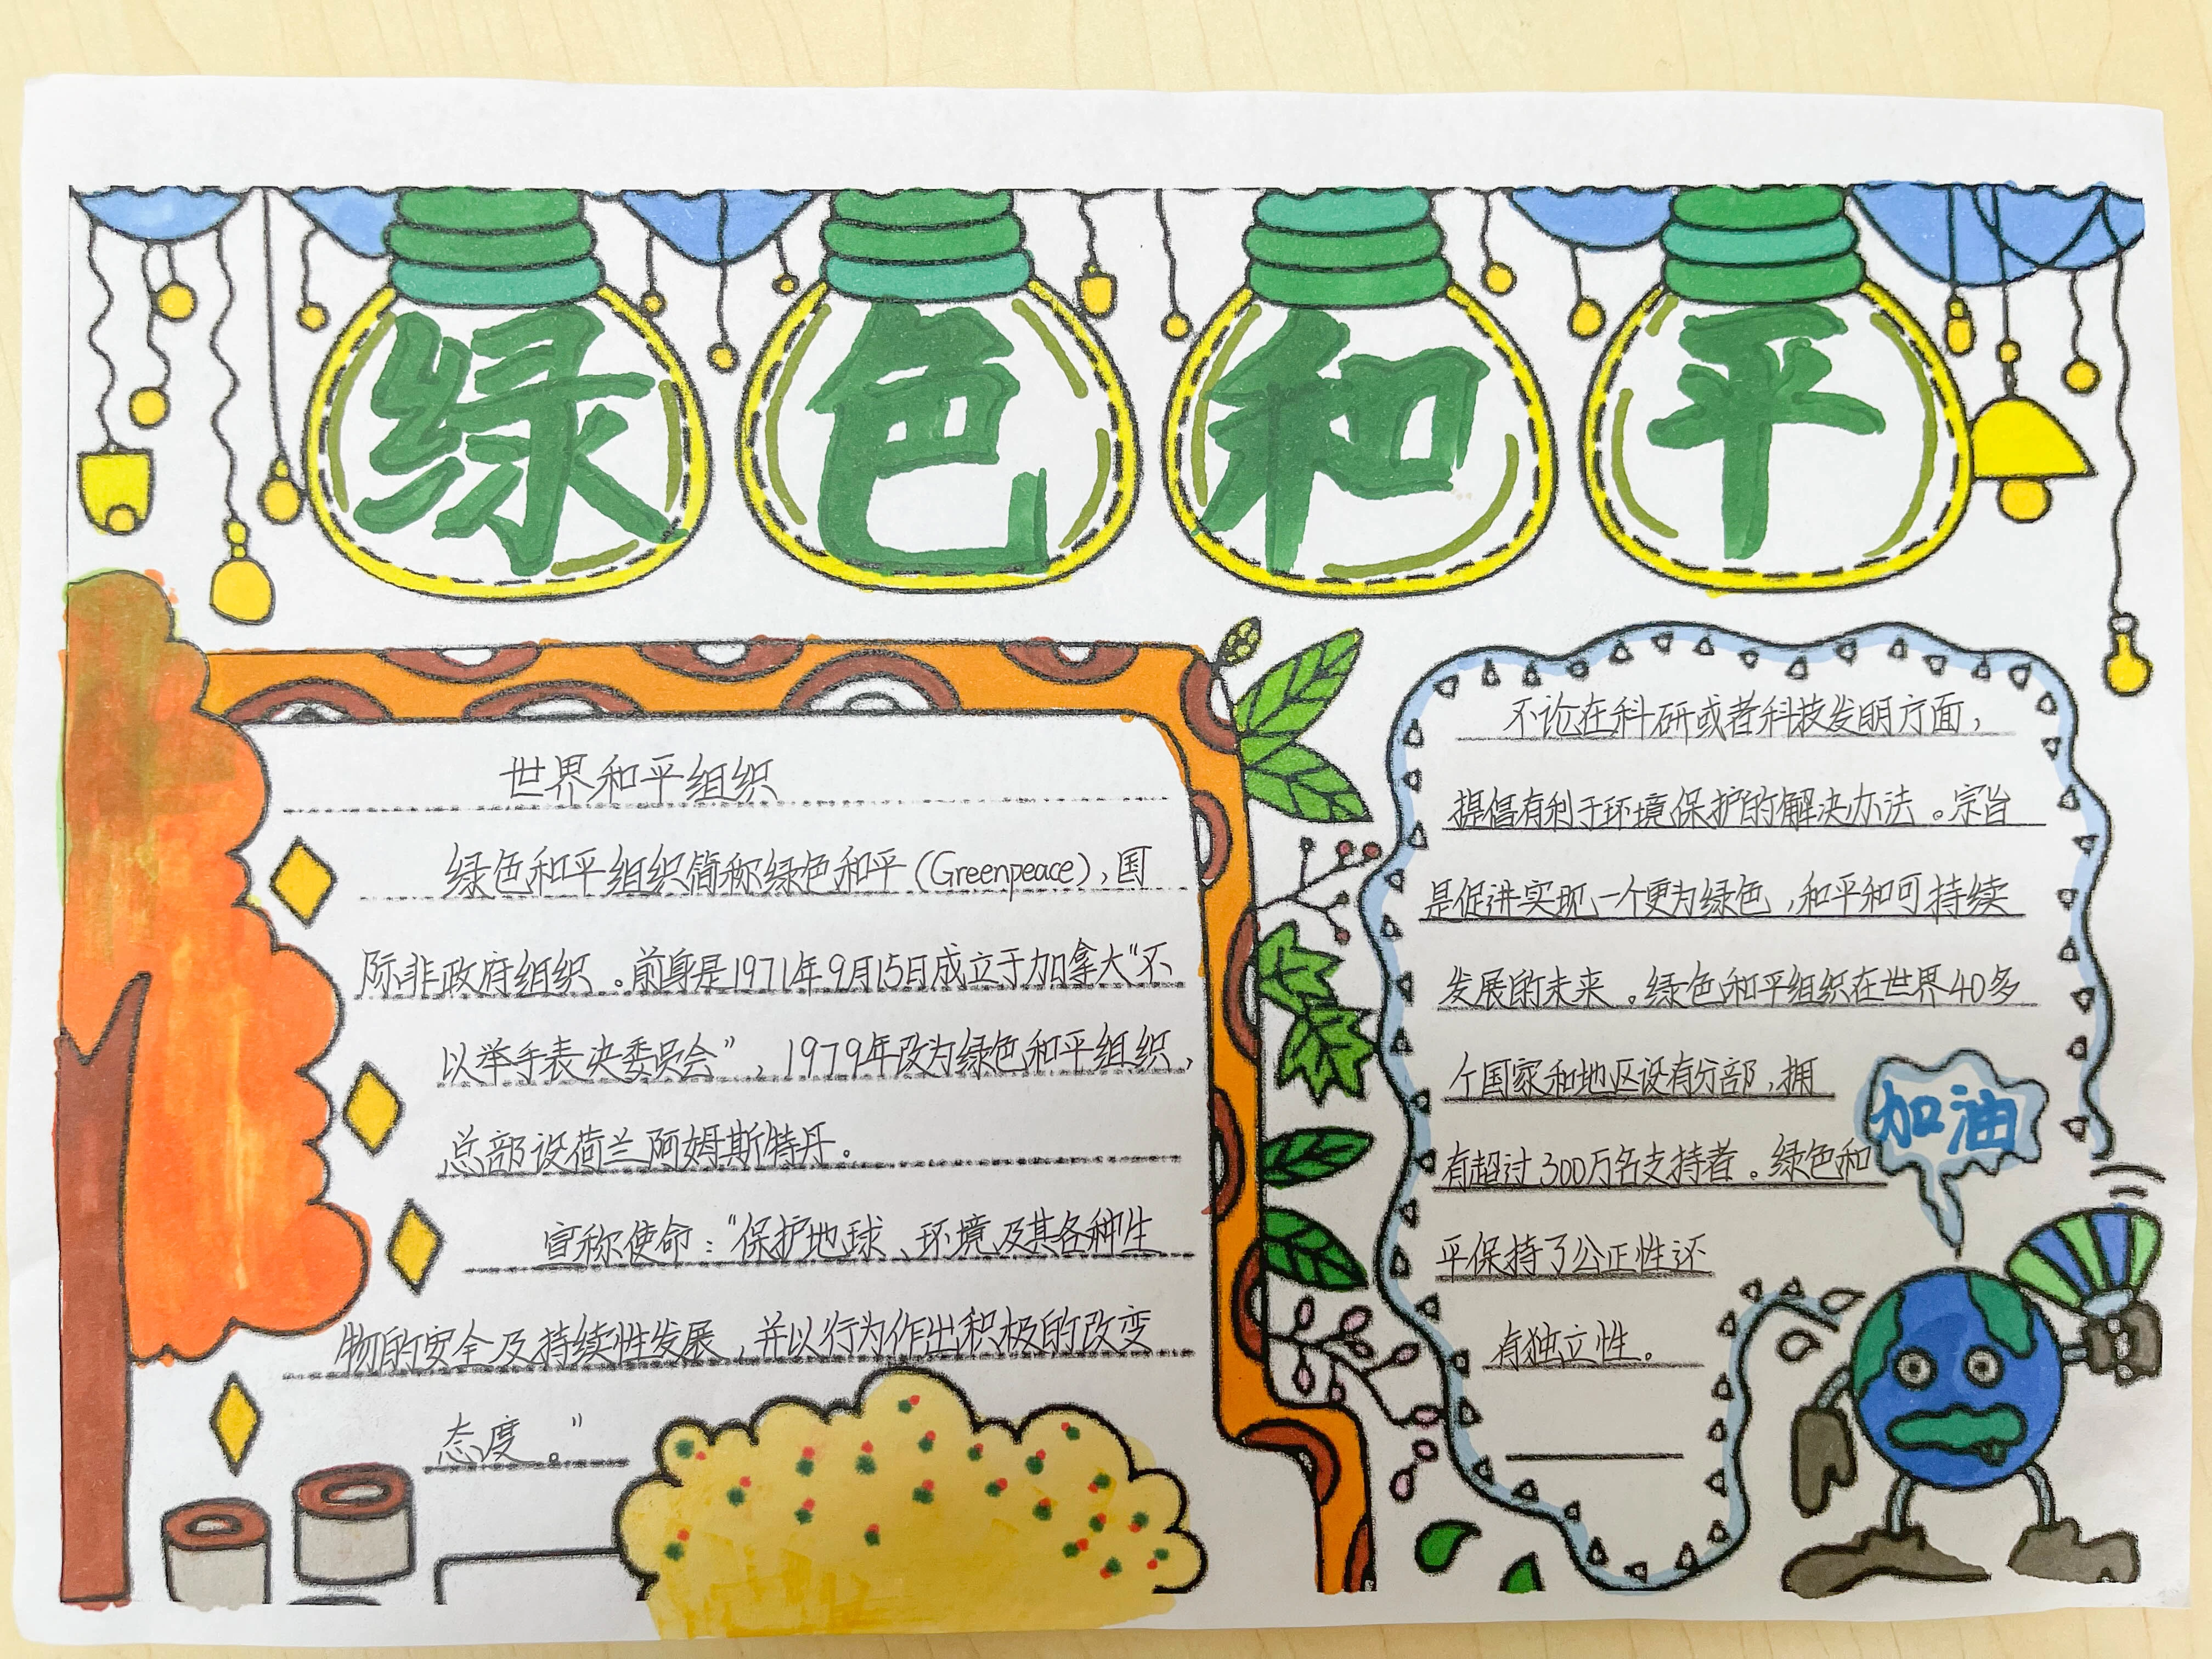 绿色和平
世界和平组织
绿色和平组织简称绿色和平(Greenpeace),国
际非政府组织。前身是1971年9月15日成立于加拿大“不
以举手表决委员会”,1979年改为绿色和平组织,
总部设荷兰阿姆斯特丹。
宣称使命:“保护地球、环境及其各种生
物的安全及持续性发展,并以行为作出积极的改变
态度。”
不论在科研或者科技发明方面,
提倡有利于环境保护的解决办法。宗旨
是促进实现一个更为绿色,和平和可持续
发展的未来。绿色和平组织在世界40多
个国家和地区设有分部,拥
有超过300万名支持者。绿色和
平保持了公正性还
有独立性。
加油